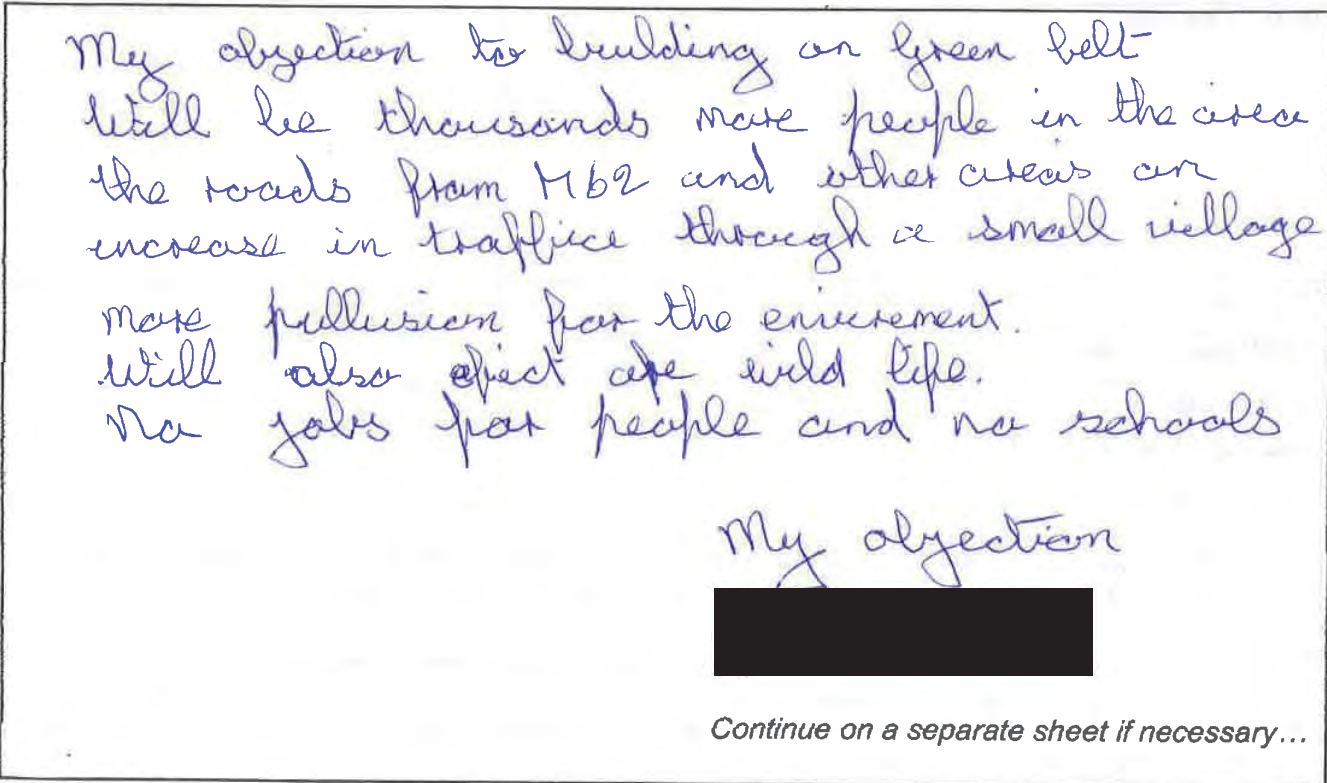 My objection to building on Green belt
Will be thousands more people in the area
the roads from M62 and other areas an
increase in traffice through a small village
more pollusion for the enviurement.
Will also efect are wild life.
No jobs for people and no schools
My objection
Continue on a separate sheet if necessary...